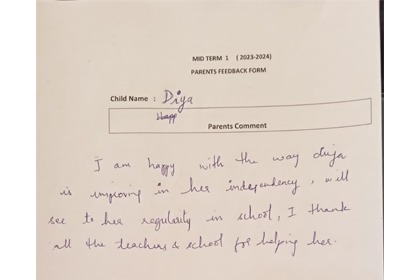 MID TERM 1 (2023-2024)
PARENTS FEEDBACK FORM
Child Name : Diya
Happ
Parents Comment
I am happy with the way diya
is improving in her independency, will
see to her regularity in school, I thank
all the teachers & school for helping her.